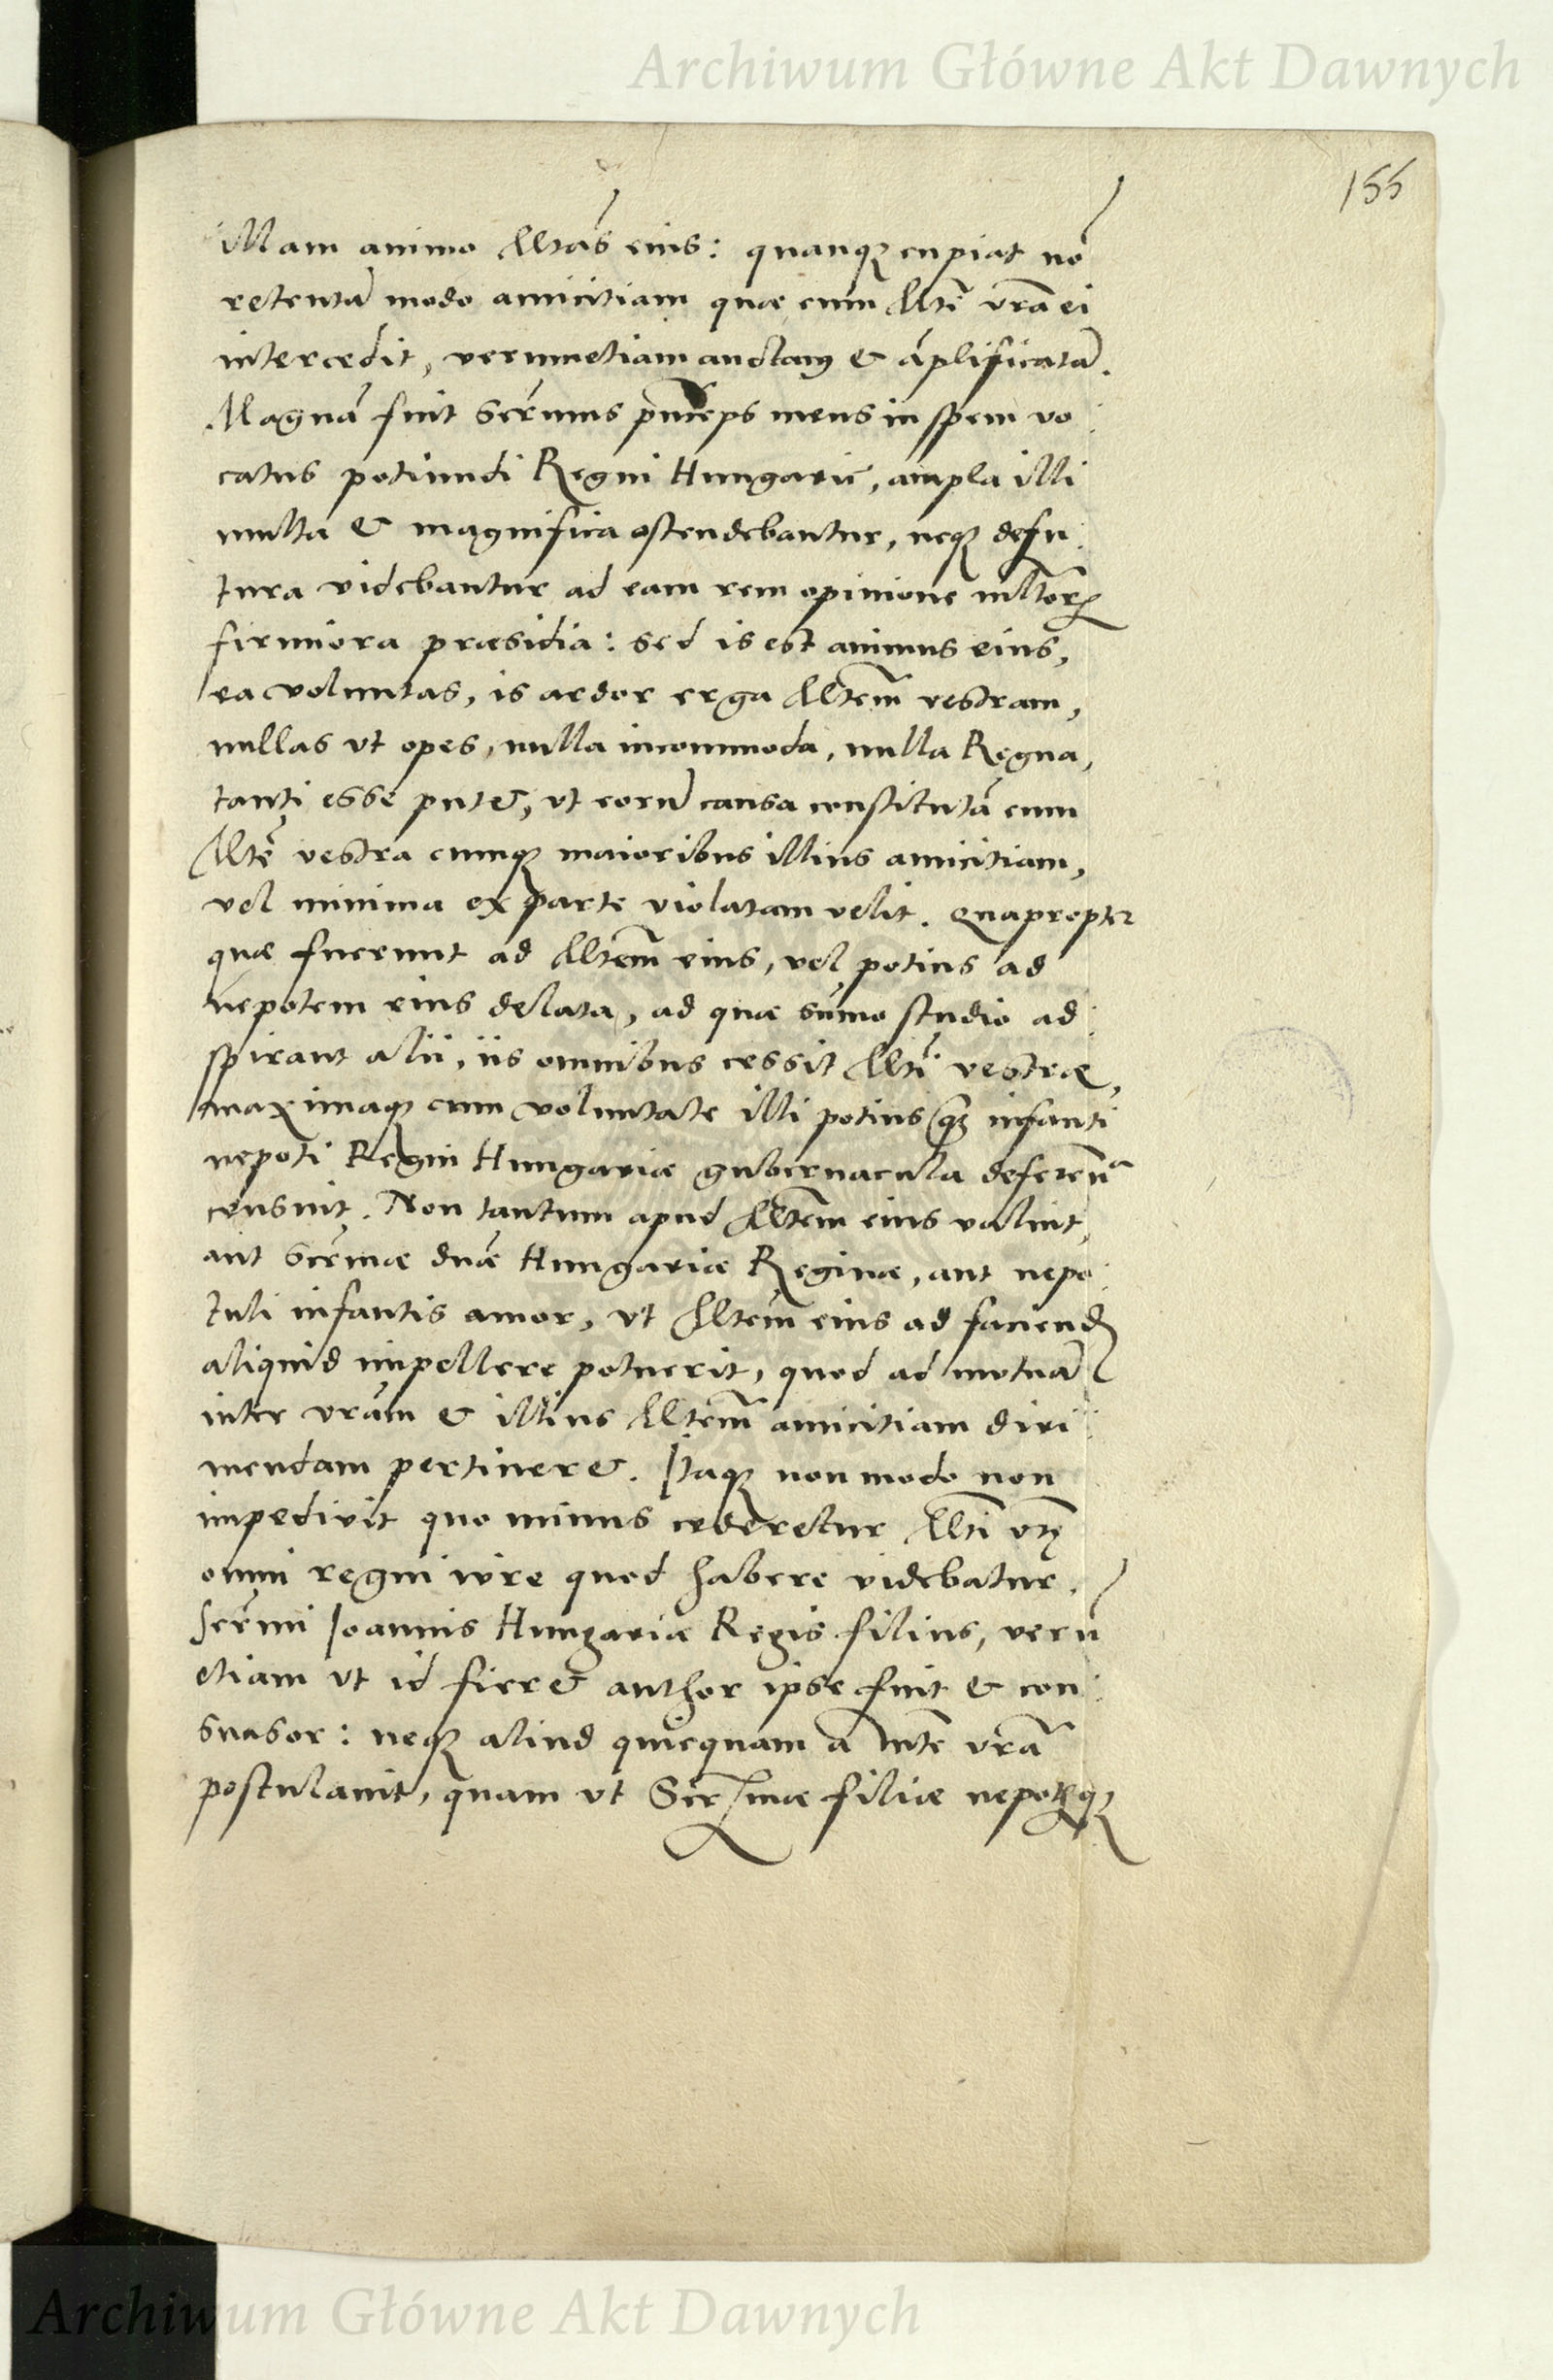 Archiwum Główne Akt Dawnych
155
illam animo Mtas eius: quanq; cupiat nõ
retentã modo amicitiam quæ cum Mte vrã ei
intercedit, verumetiam auctam & ãplificatã.
Magnã fuit Serẽmus princeps meus in spem vo
catus potiundi Regni Hungariẽ, ampla illi
multa & magnifica ostendebantur, neq; defu
tura videbantur ad eam rem opinione mltorũ
firmiora præsidia: sed is est animus eius,
ea voluntas, is ardor erga Mtem vestram,
nullas vt opes, nulla incommoda, nulla Regna,
tanti esse putet, vt eorũ causa constitutã cum
Mte vestra cumq; maioribus illius amicitiam,
vel minima ex parte violatam velit. Quapropter
quæ fuerunt ad Mtem eius, vel potius ad
nepotem eius delata, ad quæ sũmo studio ad
spirant alii, iis omnibus cessit Mti vestræ,
maximaq; cum voluntate illi potius q̃ infanti
nepoti Regni Hungariæ gubernacula deferenda
censuit. Non tantum apud Mtem eius valuit,
aut Serẽmæ dnæ Hungariæ Reginæ, aut nepo
tuli infantis amor, vt Mtem eius ad faciend
aliquid impellere potuerit, quod ad mutuã
inter vrãm & illius Mtem amicitiam diri
mendam pertineret. Itaq; non modo non
impedivit quo minus cederetur Mti vrę
omni regni iure quod habere videbatur,
serẽmi Joannis Hungariæ Regis filius, verũ
etiam vt id fieret author ipse fuit & con
suasor: neq; aliud quicquam a Mte vrã
postulavit, quam vt Serẽmæ filiæ nepotiq;
Archiwum Główne Akt Dawnych